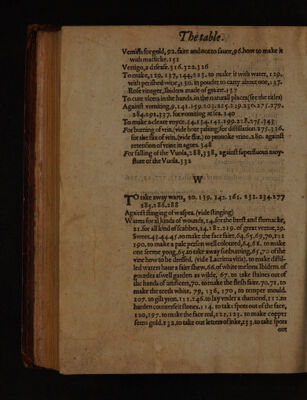 The table.
Vernish for gold, 92. faire and not to sauer, 96. how to make it
with masticke. 151
Vertigo, a disease. 316. 322. 326
To make, 129. 137, 144, 223. to make it with water, 129.
with perished wine, 130. in pouder to carry about one, 137.
Rose vineger, Ibidem made of graine. 137
To cure vlcers in the hands, in the natural places (see the titles)
Against vomiting, 9, 141. 159. 203. 225. 229. 230. 275. 279.
284. 292. 337. for vomiting at sea. 140
To make a cleare voyce. 14. 134. 145. 199. 218. 275. 343
For burning of vrin, (vide hote pissing) for distillation. 275. 336.
for the flux of vrin, (vide flix.) to prouoke vrine. 280. against
retention of vrine in agues. 348
For falling of the Vuola, 288, 338, against superfluous moy-
sture of the Vuola. 332
W
TO take away warts, 20. 139. 142. 161. 232. 234. 277
284, 286, 288
Against stinging of waspes. (vide stinging)
Waters for all kinds of wounds, 14. for the brest and stomacke,
21. for all kind of scabbes, 24. 181. 219. of great vertue, 29.
Sweet, 43. 44. 45. to make the face faire. 64. 65. 69, 70, 132
190. to make a pale person well coloured, 64, 68. to make
one seeme yong, 65. to take away sunburning, 65, 70 of the
vine how to be dressed. (vide Lacrima vitis). to make distil-
led waters haue a faire shew, 66. of white melons. Ibidem of
gourdes aswell garden as wilde, 67. to take staines out of
the hands of artificers, 70. to make the flesh faire. 70, 71. to
make the teeth white. 79, 136, 170, to temper mould.
107. to gilt yron. 111. 146. to lay vnder a diamond, 112. to
harden counterfeit stones, 114. to take spots out of the face,
120, 197. to make the face red, 121, 123. to make copper
seeme gold. 132, to take out letters of inke, 133. to take spots
out